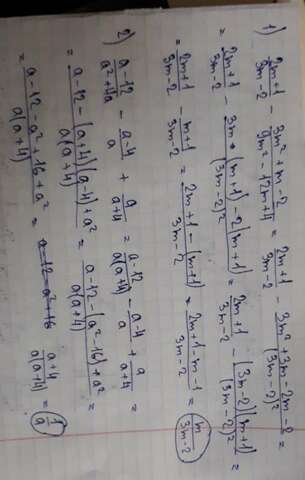 1) \frac{2m+1}{3m-2} - \frac{3m^2+m-2}{9m^2-12m+4} = \frac{2m+1}{3m-2} - \frac{3m^2+3m-2m-2}{(3m-2)^2} =
= \frac{2m+1}{3m-2} - \frac{3m*(m+1)-2(m+1)}{(3m-2)^2} = \frac{2m+1}{3m-2} - \frac{(3m-2)(m+1)}{(3m-2)^2} =
= \frac{2m+1}{3m-2} - \frac{m+1}{3m-2} = \frac{2m+1-(m+1)}{3m-2} = \frac{2m+1-m-1}{3m-2} = \frac{m}{3m-2}
2) \frac{a-12}{a^2+4a} - \frac{a-4}{a} + \frac{a}{a+4} = \frac{a-12}{a(a+4)} - \frac{a-4}{a} + \frac{a}{a+4} =
= \frac{a-12-(a+4)(a-4)+a^2}{a(a+4)} = \frac{a-12-(a^2-16)+a^2}{a(a+4)} =
= \frac{a-12-a^2+16+a^2}{a(a+4)} = \frac{a+4}{a(a+4)} = \frac{1}{a}